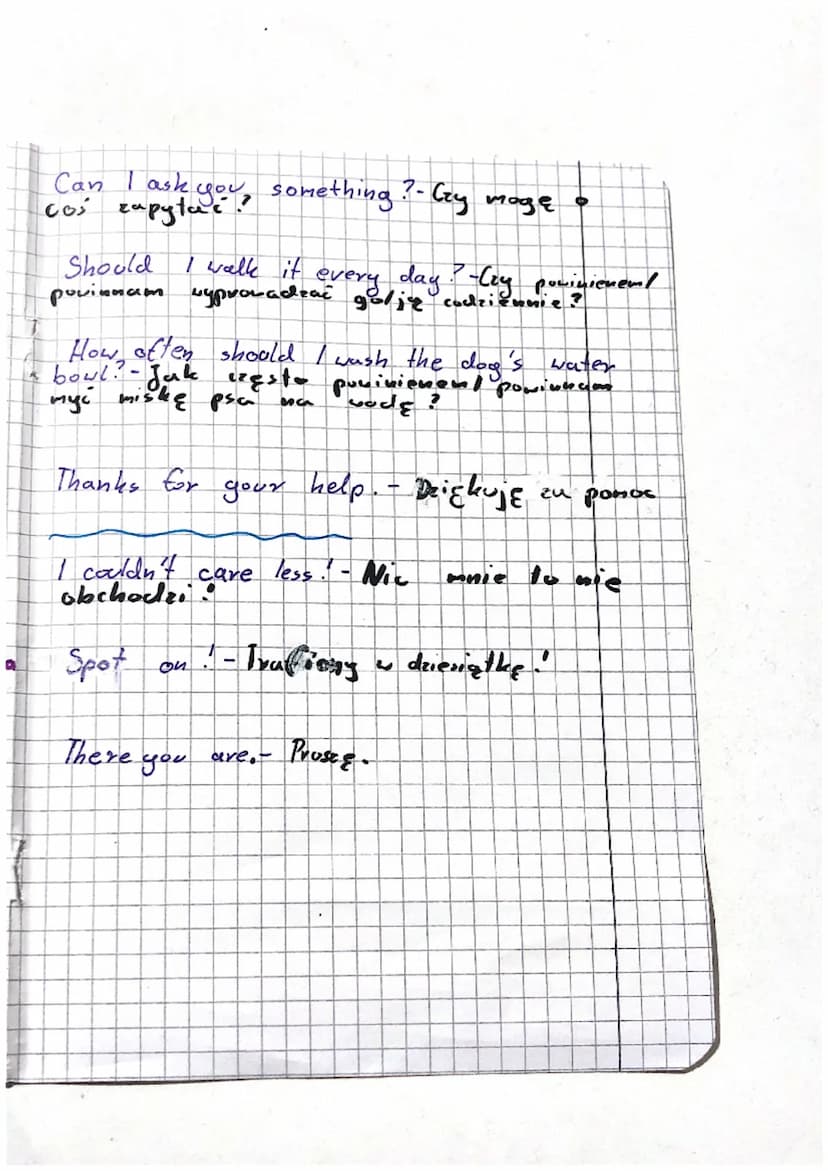 Can I ask you something? - Czy mogę o
coś zapytać?
Should I walk it every day? - Czy powinienem/
powinnam wyprowadzać go/ję codziennie?
How often should I wash the dog's water
bowl? - Jak często powinienem/powinnam
myć miskę psa na wodę?
Thanks for your help. - Dziękuję za pomoc
I couldn't care less! - Nic mnie to nie
obchodzi!
Spot on! - Trafiony w dziesiątkę!
There you are. - Proszę.